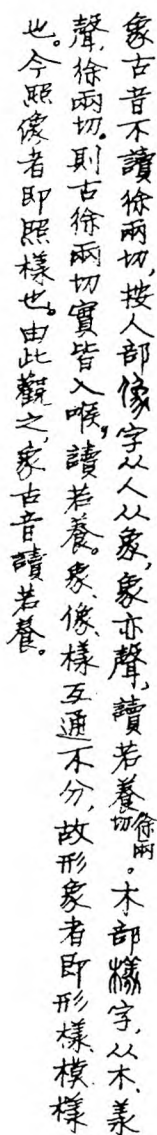 象古音不讀徐兩切,按人部像字从人从象,象亦聲,讀若養徐兩切。木部樣字,从木、羕
聲,徐兩切。則古徐兩切實皆入喉,讀若養。象、像、樣互通不分,故形象者即形樣、模樣
也。今照像者即照樣也。由此觀之,象古音讀若養。